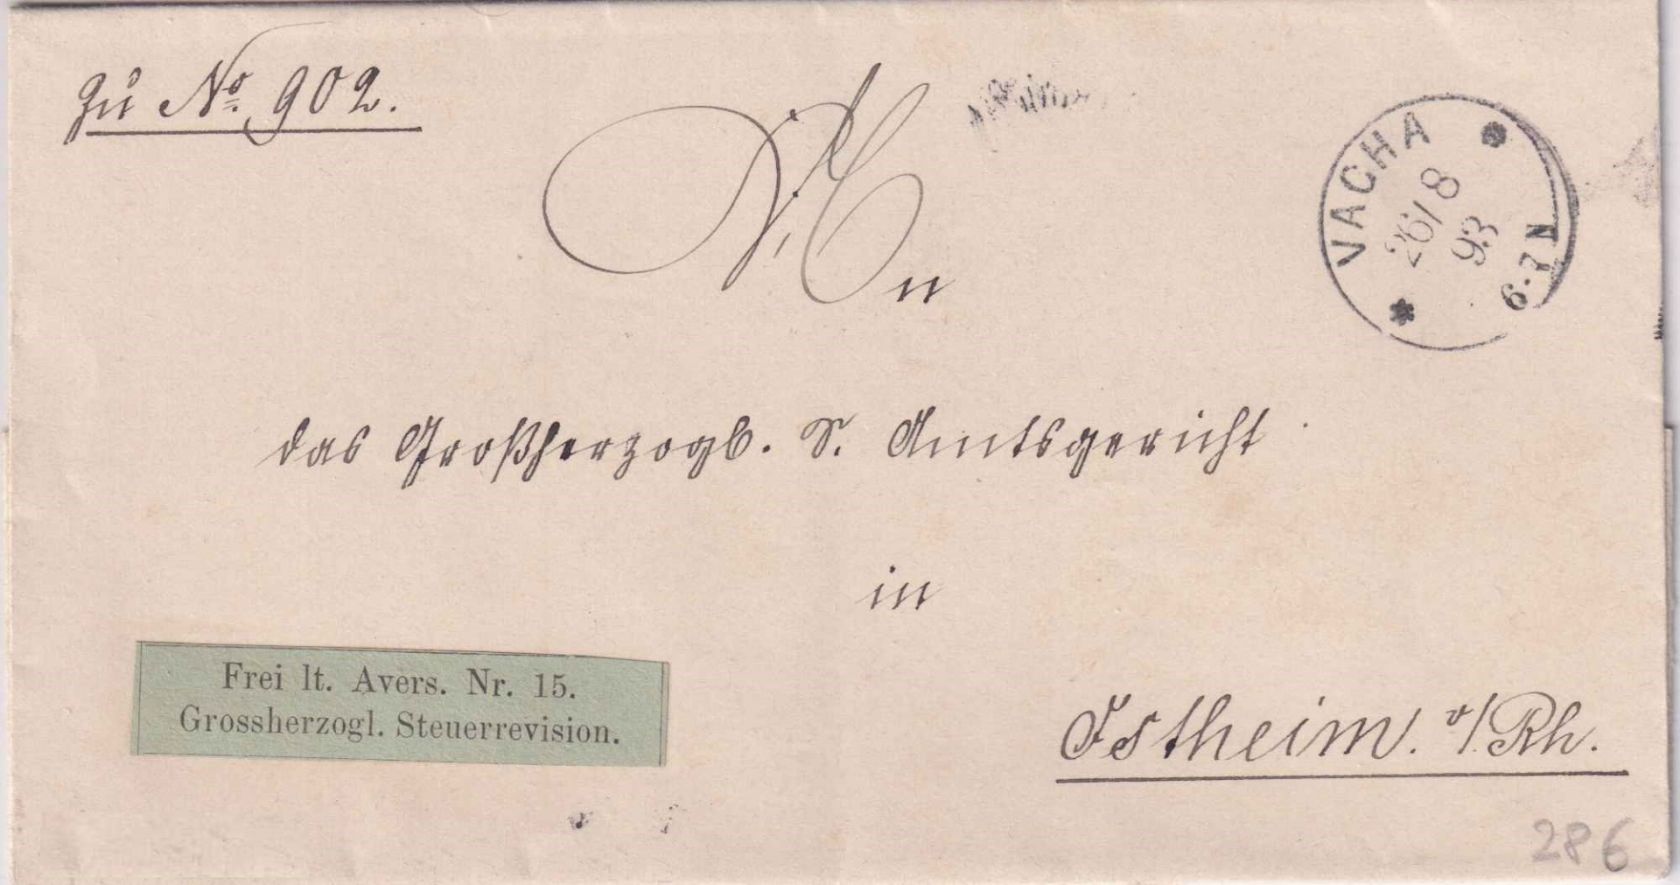 zu No. 902.
An
VACHA
26/8
93
6-7N
das Großherzogl. S. Amtsgericht
in
Frei lt. Avers. Nr. 15.
Grossherzogl. Steuerrevision.
Ostheim v/Rh.
286